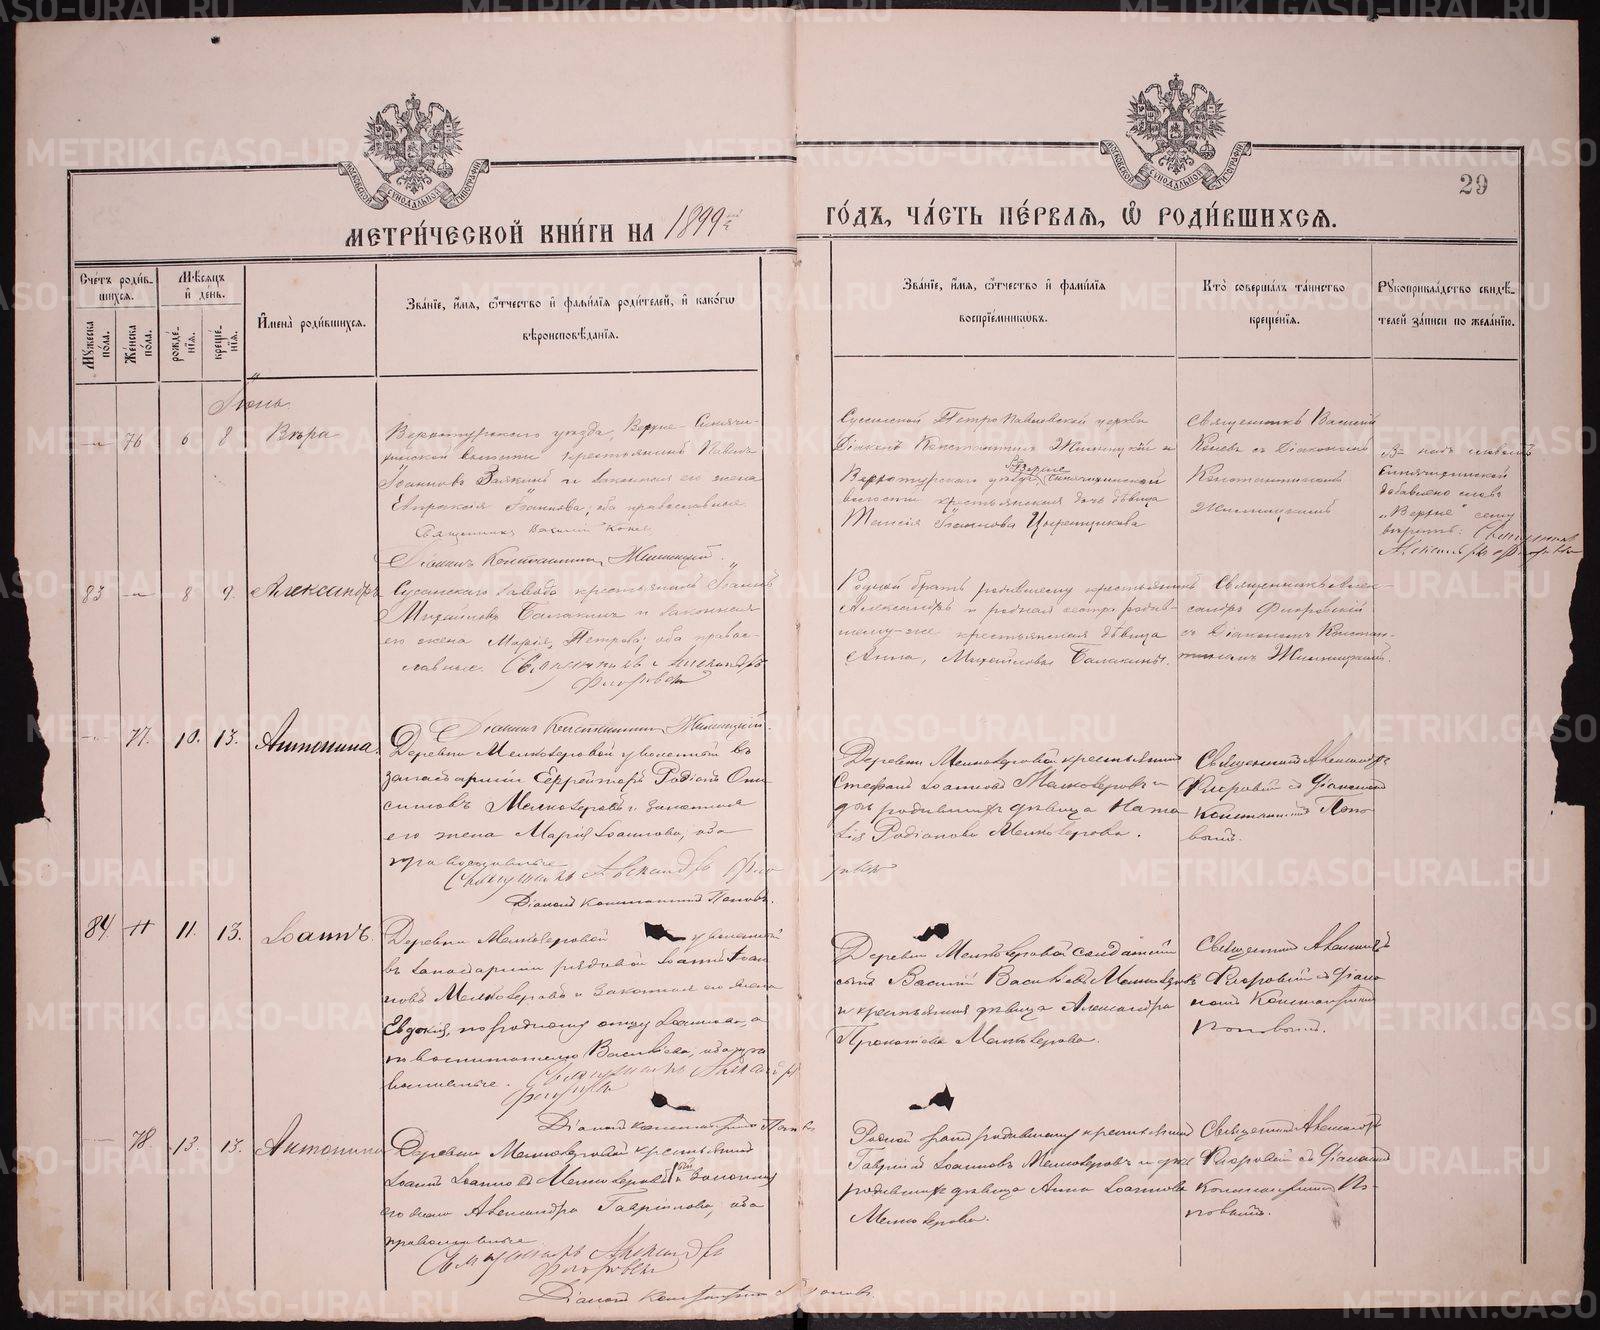 29
МЕТРИ́ЧЕСКОЙ КНИ́ГИ НА 1899й
ГО́ДЪ, ЧА́СТЬ ПЕ́РВАЯ, Ѽ РОДИ́ВШИХСЯ.
Сче́тъ роди́в-
шихся.
Мꙋжеска по́ла.
Же́нска по́ла.
Мѣ́сяцъ и҆ день.
рожде́-
нїя.
креще́-
нїя.
И҆мена̀ роди́вшихся.
Зва́нїе, и҆́мя, ѻ҆́тчество и҆ фами́лїя роди́телей, и҆ како́гѡ
вѣроисповѣ́данїя.
Зва́нїе, и҆́мя, ѻ҆́тчество и҆ фами́лїя
воспрїе́мникѡвъ.
Кто̀ соверша́лъ та́инство
креще́нїя.
Рꙋкоприкла́дство свидѣ́-
телей за́писи по жела́нїю.
Іюнь
76 6 8 Вѣра
Верхотурскаго уѣзда, Верхне-Синячи-
хинской волости крестьянинъ Павелъ
Іоанновъ и законная его жена
Евпраксія Іоаннова, оба православные
Священникъ Василій Коневъ
Діаконъ Константинъ
Сусанской Петро Павловской церкви
Діаконъ Константинъ и
Верхотурскаго уѣзда Верхне Синячихинской
волости крестьянская дочь дѣвица
Таисія
Священникъ Василій
Коневъ съ Діакономъ
Константиномъ
Въ надъ словомъ
Синячихинской
добавлено слово
„Верхне" сему
вѣрить: Священникъ
Александръ Флоровскій
83 8 9 Александръ
Сусанскаго завода крестьянинъ Іоаннъ
Михайловъ Балакинъ и законная
его жена Марія Петрова; оба право-
славные. Священникъ Александръ
Флоровскій
Діаконъ Константинъ
Родной братъ родившему крестьянинъ
Александръ и родная сестра родив-
шему-же крестьянская дѣвица
Анна, Михайловы Балакины.
Священникъ Алек-
сандръ Флоровскій
съ Діакономъ Констан-
тиномъ
77. 10. 13. Антонина
Деревни Мелкозеровой уволенный въ
запасъ арміи Ефрейторъ Родіонъ Они-
симовъ Мелкозеровъ и законная
его жена Марія Іоаннова, оба
православные
Священникъ Александръ Фло
ровскій
Діаконъ Константинъ Поповъ.
Деревни Мелкозеровой крестьянинъ
Стефанъ Іоанновъ Мелкозеровъ и
дочь родившихъ дѣвица Ната
лія Родіонова Мелкозерова.
Священникъ Александръ
Флоровскій съ Діакономъ
Константиномъ Попо
вымъ.
84 11. 13. Іоаннъ.
Деревни Мелкозеровой уволенный
въ запасъ арміи рядовой Іоаннъ Іоан
новъ Мелкозеровъ и законная его жена
Евдокія, по родному отцу Іоаннова, а
по воспитателю Васильева, оба пра
вославные. Священникъ Александръ
Флоровскій
Діаконъ Константинъ Поповъ
Деревни Мелкозеровой солдатскій
сынъ Василій Васильевъ Мелкозеровъ
и крестьянская дѣвица Александра
Прокопьева Мелкозерова.
Священникъ Александръ
Флоровскій съ Діако
номъ Константиномъ
Поповымъ.
78. 13. 13. Антонина
Деревни Мелкозеровой крестьянинъ
Іоаннъ Іоанновъ Мелкозеровъ и законная
его жена Александра Гаврілова, оба
православные
Священникъ Александръ
Флоровскій
Діаконъ Константинъ Поповъ.
Родной братъ родившему крестьянинъ
Гавріилъ Іоанновъ Мелкозеровъ и дочь
родившихъ дѣвица Анна Іоаннова
Мелкозерова.
Священникъ Александръ
Флоровскій съ Діакономъ
Константиномъ По-
повымъ.
METRIKI.GASO-URAL.RU